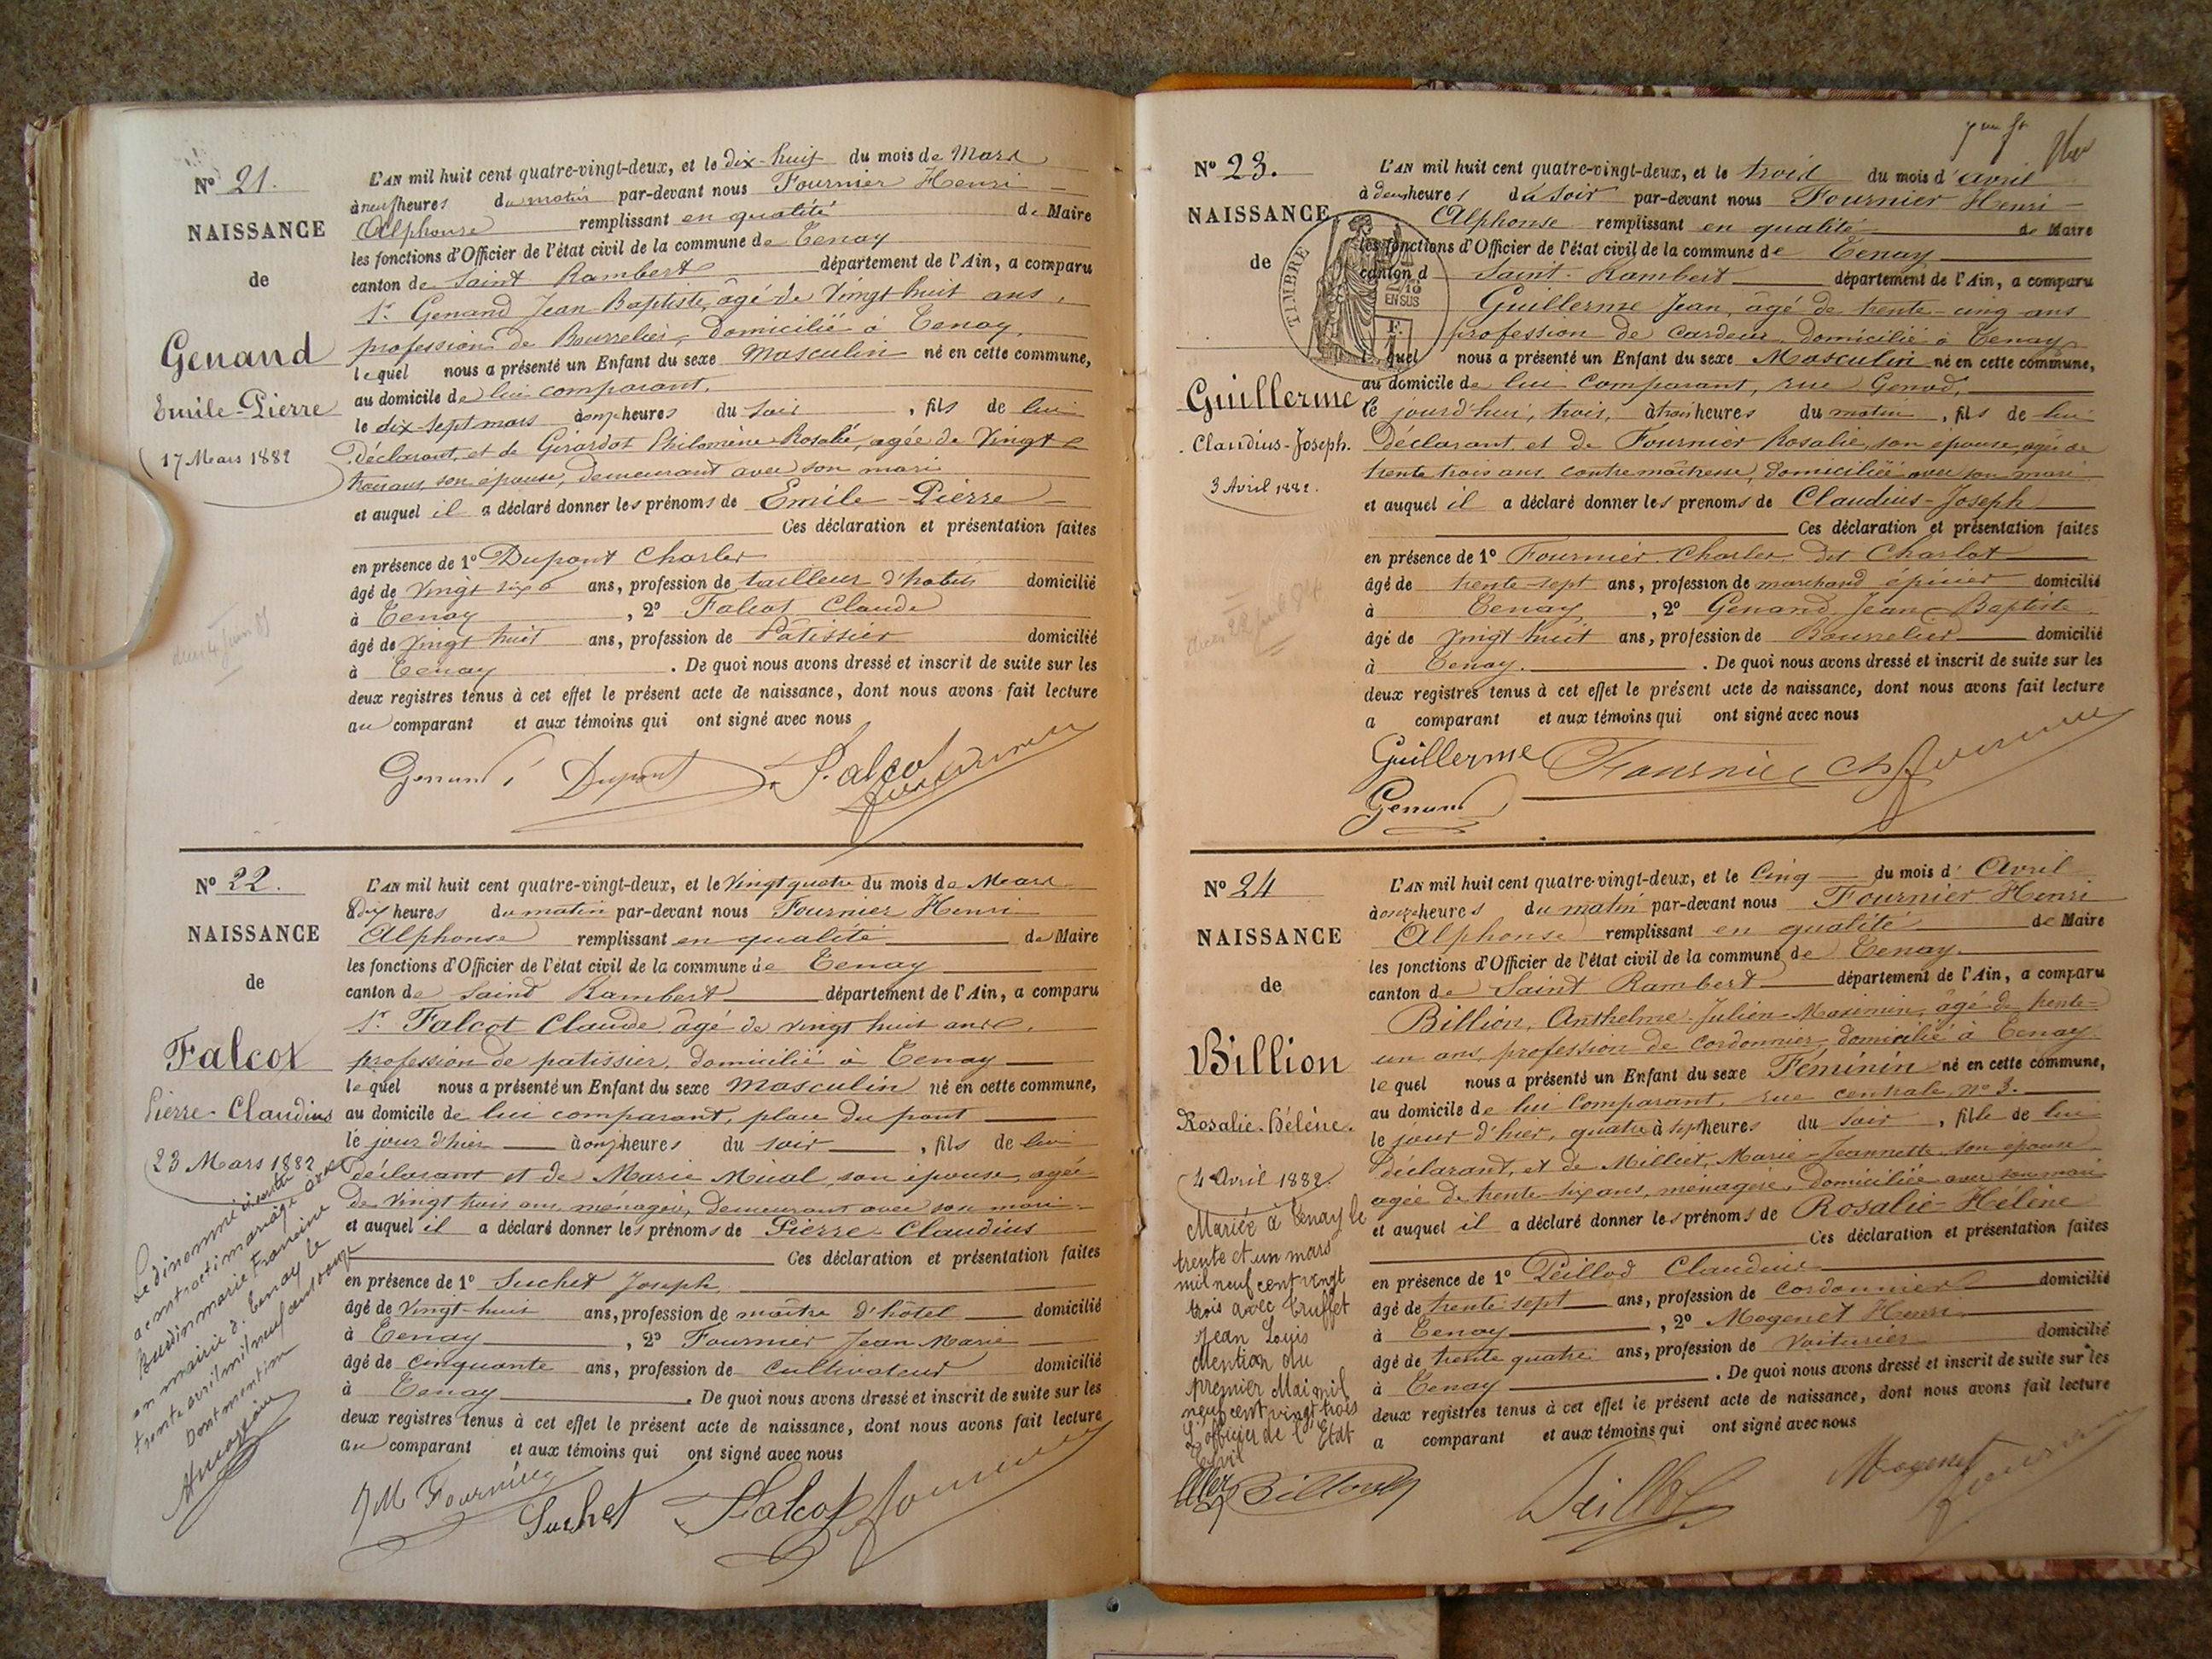 N° 21.
NAISSANCE
de
Genand
Emile-Pierre
17 Mars 1882
L'AN mil huit cent quatre-vingt-deux, et le dix-huit du mois de Mars
à neuf heures du matin par-devant nous Fournier Henri
Alphonse remplissant en qualité de Maire
les fonctions d'Officier de l'état civil de la commune de Tenay
canton de Saint Rambert département de l'Ain, a comparu
Sr Genand Jean Baptiste, âgé de vingt huit ans,
profession de Bourrelier, domicilié à Tenay,
lequel nous a présenté un Enfant du sexe Masculin né en cette commune,
au domicile de lui comparant,
le dix-sept mars à onze heures du soir, fils de lui
déclarant, et de Girardot Philomène Rosalie, agée de vingt
trois ans, son épouse, demeurant avec son mari
et auquel il a déclaré donner les prénoms de Emile-Pierre
Ces déclaration et présentation faites
en présence de 1° Dupont Charles
âgé de vingt six ans, profession de tailleur d'habits domicilié
à Tenay, 2° Falcot Claude
âgé de vingt huit ans, profession de Patissier domicilié
à Tenay. De quoi nous avons dressé et inscrit de suite sur les
deux registres tenus à cet effet le présent acte de naissance, dont nous avons fait lecture
au comparant et aux témoins qui ont signé avec nous
Genand Dupont Falcot Fournier
N° 22.
NAISSANCE
de
Falcot
Pierre-Claudius
23 Mars 1882
Le dénommé ci contre
a contracté mariage avec
marie Francine
en mairie d. Tenay le
trente avril mil neuf cent onze
Dont mention
L'AN mil huit cent quatre-vingt-deux, et le vingt quatre du mois de Mars
à dix heures du matin par-devant nous Fournier Henri
Alphonse remplissant en qualité de Maire
les fonctions d'Officier de l'état civil de la commune de Tenay
canton de Saint Rambert département de l'Ain, a comparu
Sr Falcot Claude âgé de vingt huit ans,
profession de patissier, domicilié à Tenay
lequel nous a présenté un Enfant du sexe Masculin né en cette commune,
au domicile de lui comparant, place du pont
le jour d'hier à onze heures du soir, fils de lui
déclarant et de Marie Mual, son épouse, agée
de vingt trois ans, ménagère, demeurant avec son mari
et auquel il a déclaré donner les prénoms de Pierre-Claudius
Ces déclaration et présentation faites
en présence de 1° Suchet Joseph
âgé de vingt-huit ans, profession de maître d'hôtel domicilié
à Tenay, 2° Fournier Jean Marie
âgé de cinquante ans, profession de cultivateur domicilié
à Tenay. De quoi nous avons dressé et inscrit de suite sur les
deux registres tenus à cet effet le présent acte de naissance, dont nous avons fait lecture
au comparant et aux témoins qui ont signé avec nous
JM Fournier Suchet Falcot Fournier
N° 23.
NAISSANCE
de
TIMBRE
EN SUS
Guillerme
Claudius-Joseph.
3 Avril 1882.
L'AN mil huit cent quatre-vingt-deux, et le trois du mois d'avril
à deux heures du soir par-devant nous Fournier Henri
Alphonse remplissant en qualité de Maire
les fonctions d'Officier de l'état civil de la commune de Tenay
canton d Saint-Rambert département de l'Ain, a comparu
Guillerme Jean, âgé de trente-cinq ans
profession de cardeur, domicilié à Tenay
lequel nous a présenté un Enfant du sexe Masculin né en cette commune,
au domicile de lui comparant, rue Genod,
le jourd'hui, trois, à trois heures du matin, fils de lui
déclarant et de Fournier Rosalie, son épouse, agée de
trente trois ans, contremaîtresse, domiciliée avec son mari
et auquel il a déclaré donner les prénoms de Claudius-Joseph
Ces déclaration et présentation faites
en présence de 1° Fournier Charles dit Charlot
âgé de trente-sept ans, profession de marchand épicier domicilié
à Tenay, 2° Genand Jean Baptiste
âgé de vingt huit ans, profession de Bourrelier domicilié
à Tenay. De quoi nous avons dressé et inscrit de suite sur les
deux registres tenus à cet effet le présent acte de naissance, dont nous avons fait lecture
a comparant et aux témoins qui ont signé avec nous
Guillerme Fournier Ch Fournier
Genand
N° 24
NAISSANCE
de
Billion
Rosalie-Hélène.
4 Avril 1882.
Mariée à Tenay le
trente et un mars
mil neuf cent vingt
trois avec Truffet
Jean Louis
Mention du
premier Mai mil
neuf cent vingt trois
L'officier de l'Etat
Civil
L'AN mil huit cent quatre-vingt-deux, et le Cinq du mois d' Avril
à onze heures du matin par-devant nous Fournier Henri
Alphonse remplissant en qualité de Maire
les fonctions d'Officier de l'état civil de la commune de Tenay
canton de Saint Rambert département de l'Ain, a comparu
Billion, Anthelme-Julien-Maximin, âgé de trente-
un ans, profession de cordonnier, domicilié à Tenay
lequel nous a présenté un Enfant du sexe Féminin né en cette commune,
au domicile de lui Comparant, rue centrale, n° 3.
le jour d'hier, quatre à sept heures du soir, fille de lui
déclarant, et de Milliet, Marie-Jeannette, son épouse
agée de trente-six ans, ménagère, domiciliée avec son mari
et auquel il a déclaré donner les prénoms de Rosalie-Hélène
Ces déclaration et présentation faites
en présence de 1° Peillod Claudius
âgé de trente-sept ans, profession de cordonnier domicilié
à Tenay, 2° Mogenet Henri
âgé de trente quatre ans, profession de voiturier domicilié
à Tenay. De quoi nous avons dressé et inscrit de suite sur les
deux registres tenus à cet effet le présent acte de naissance, dont nous avons fait lecture
a comparant et aux témoins qui ont signé avec nous
Billion Peillod Mogenet Fournier